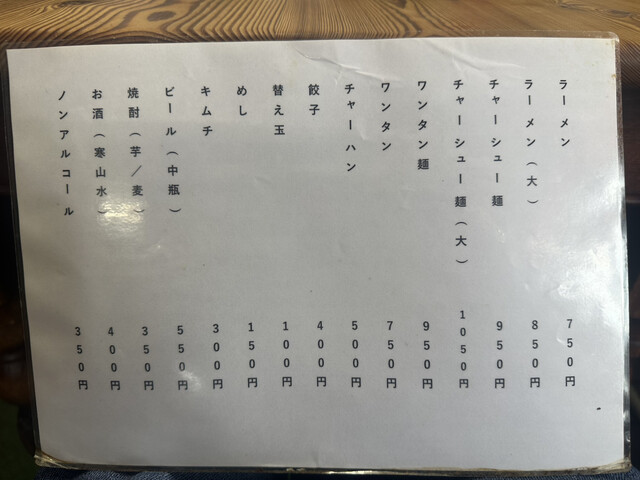 ラーメン 750円
ラーメン（大） 850円
チャーシュー麺 950円
チャーシュー麺（大） 1050円
ワンタン麺 950円
ワンタン 750円
チャーハン 500円
餃子 400円
替え玉 100円
めし 150円
キムチ 300円
ビール（中瓶） 550円
焼酎（芋／麦） 350円
お酒（寒山水） 400円
ノンアルコール 350円